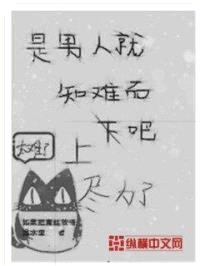 是男人就
知难而
下吧
上
尽力了
太难了
纵横中文网